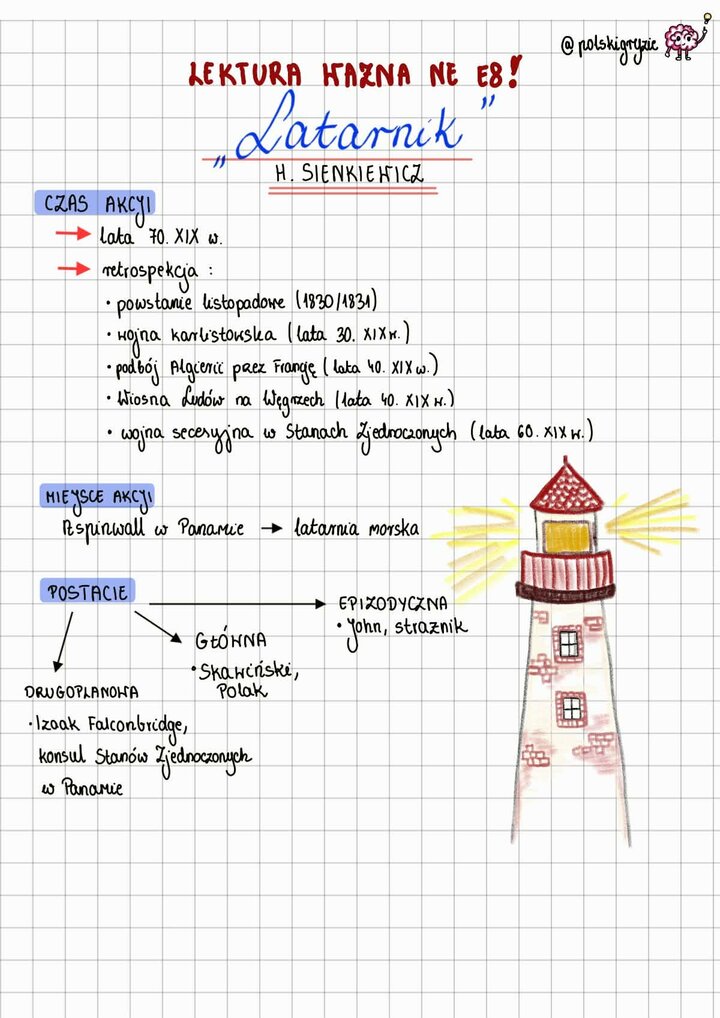 @polskigryzie
LEKTURA WAŻNA NE E8!
„Latarnik”
H. SIENKIEWICZ
CZAS AKCJI
→ lata 70. XIX w.
→ retrospekcja :
• powstanie listopadowe (1830/1831)
• wojna karlistowska (lata 30. XIX w.)
• podbój Algierii przez Francję (lata 40. XIX w.)
• Wiosna Ludów na Węgrzech (lata 40. XIX w.)
• wojna secesyjna w Stanach Zjednoczonych (lata 60. XIX w.)
MIEJSCE AKCJI
Aspinwall w Panamie → latarnia morska
POSTACIE
EPIZODYCZNA
• John, strażnik
GŁÓWNA
• Skawiński,
Polak
DRUGOPLANOWA
• Izaak Falconbridge,
konsul Stanów Zjednoczonych
w Panamie